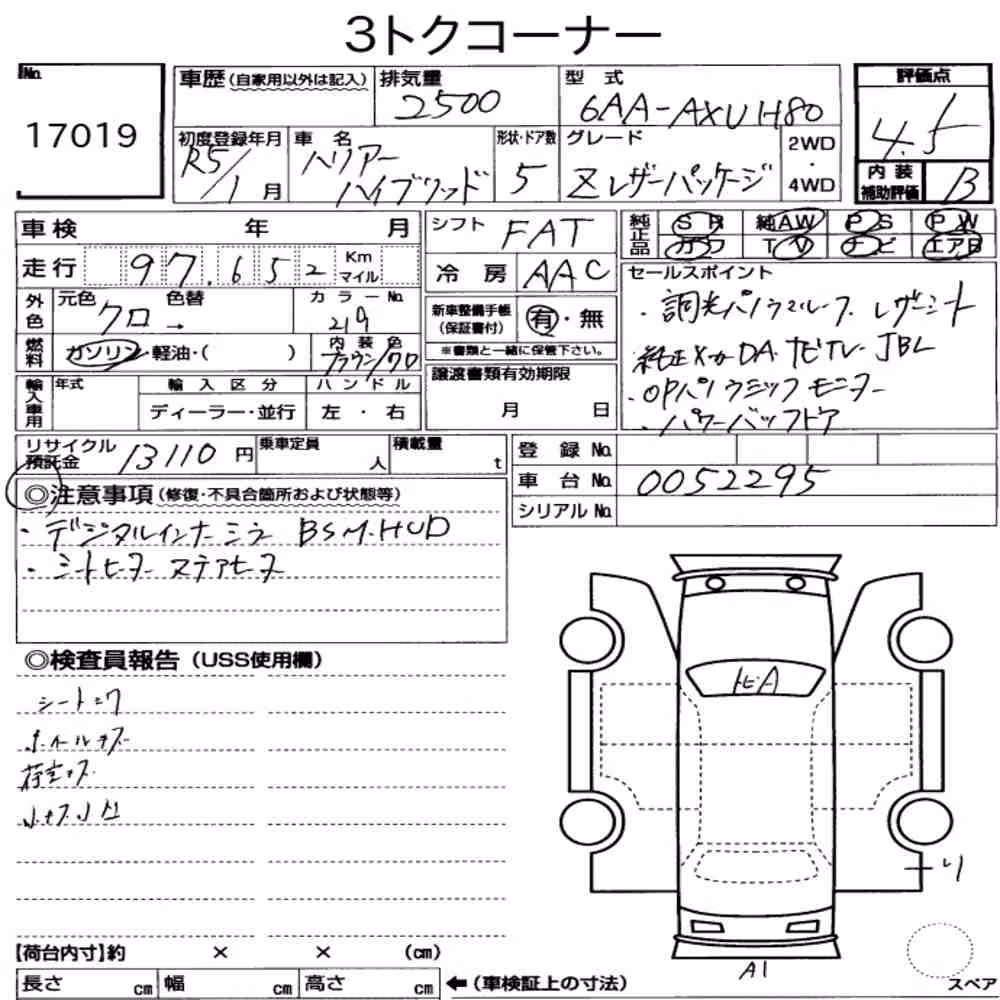 3トクコーナー
No.
17019
車歴(自家用以外は記入)
排気量
2500
型 式
6AA-AXUH80
評価点
4.5
初度登録年月
R5/1月
車 名
ハリアー
ハイブリッド
形状・ドア数
5
グレード
Zレザーパッケージ
2WD
・
4WD
内 装
補助評価
B
車検 年 月
走行 97.652 Km マイル
シフト FAT
冷房 AAC
純正品
SR 純AW PS PW
カワ TV ナビ エアB
外色
元色 クロ→
色替
カラーNo.
219
燃料
ガソリン・軽油・( )
内装色
ブラウン/クロ
新車整備手帳
(保証書付)
有・無
※書類と一緒に保管下さい。
セールスポイント
・調光パノラマルーフ レザーシート
純正メーカーDA.ナビTV.JBL
・OPパノラミックモニター
・パワーバックドア
輸入車用
年式
輸入区分
ディーラー・並行
ハンドル
左・右
譲渡書類有効期限
月 日
リサイクル
預託金
13110円
乗車定員
人
積載量
t
登録No.
車台No. 0052295
シリアルNo.
◎注意事項(修復・不具合箇所および状態等)
・デジタルインナーミラー BSM.HUD
・シートヒーター ステアヒーター
◎検査員報告(USS使用欄)
シートシワ
ホイールキズ
荷室キズ
小キズ小凹
トビA
A1
スペア
【荷台内寸】約 × × (cm)
長さ cm 幅 cm 高さ cm
←(車検証上の寸法)